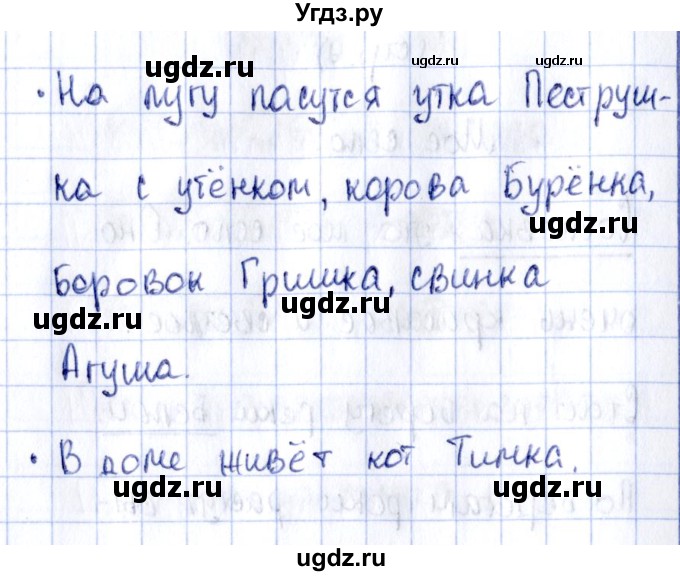 Угдз.ру
ugdz.ru ugdz.ru
· На лугу пасутся утка Пеструш-
ка с утёнком, корова Бурёнка,
ugdz.ru
Боровок Гришка, свинка
ugdz.ru ugdz.ru
Агуша.
ugdz.ru
· В доме живёт кот Тимка.
ugdz.ru ugdz.ru
ugdz.ru